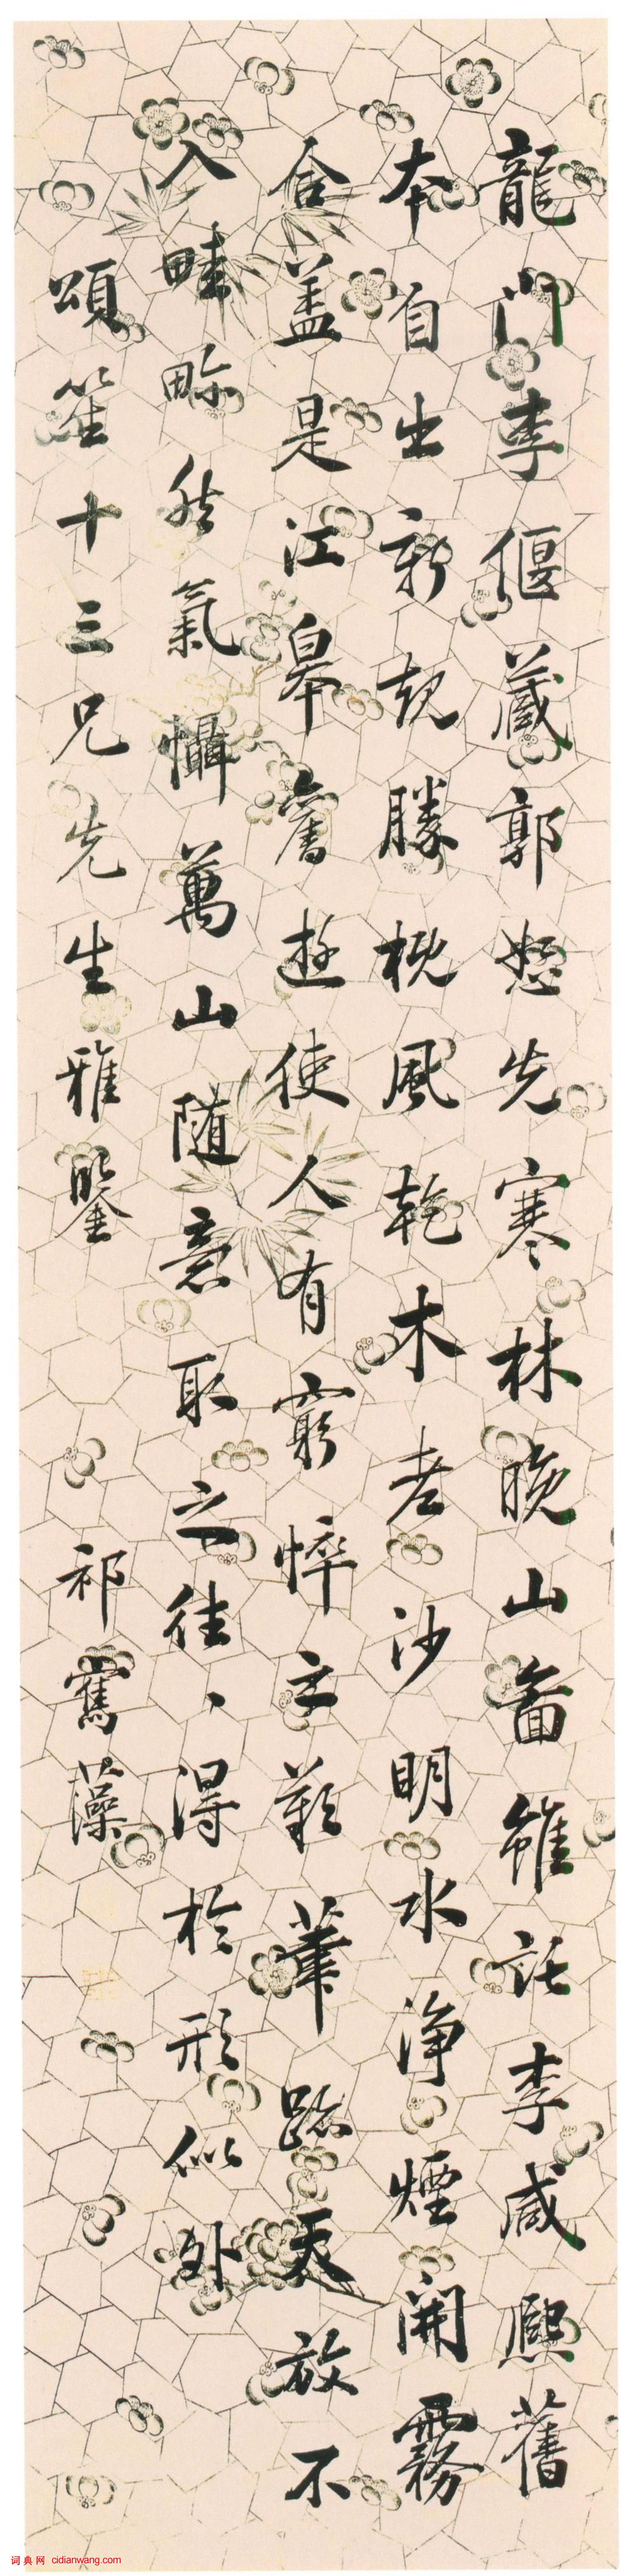 龍門李偃藏郭恕先寒林晚山圖雖託李咸熙舊
本自出新規勝概風乾木老沙明水淨煙開霧
合蓋是江皋舊遊使人有窮悴之歎筆跡天放不
入畦畛然氣懾萬山隨意取之往、得於形似外
頌笙十三兄先生雅鑒 祁寯藻
词典网 cidianwang.com